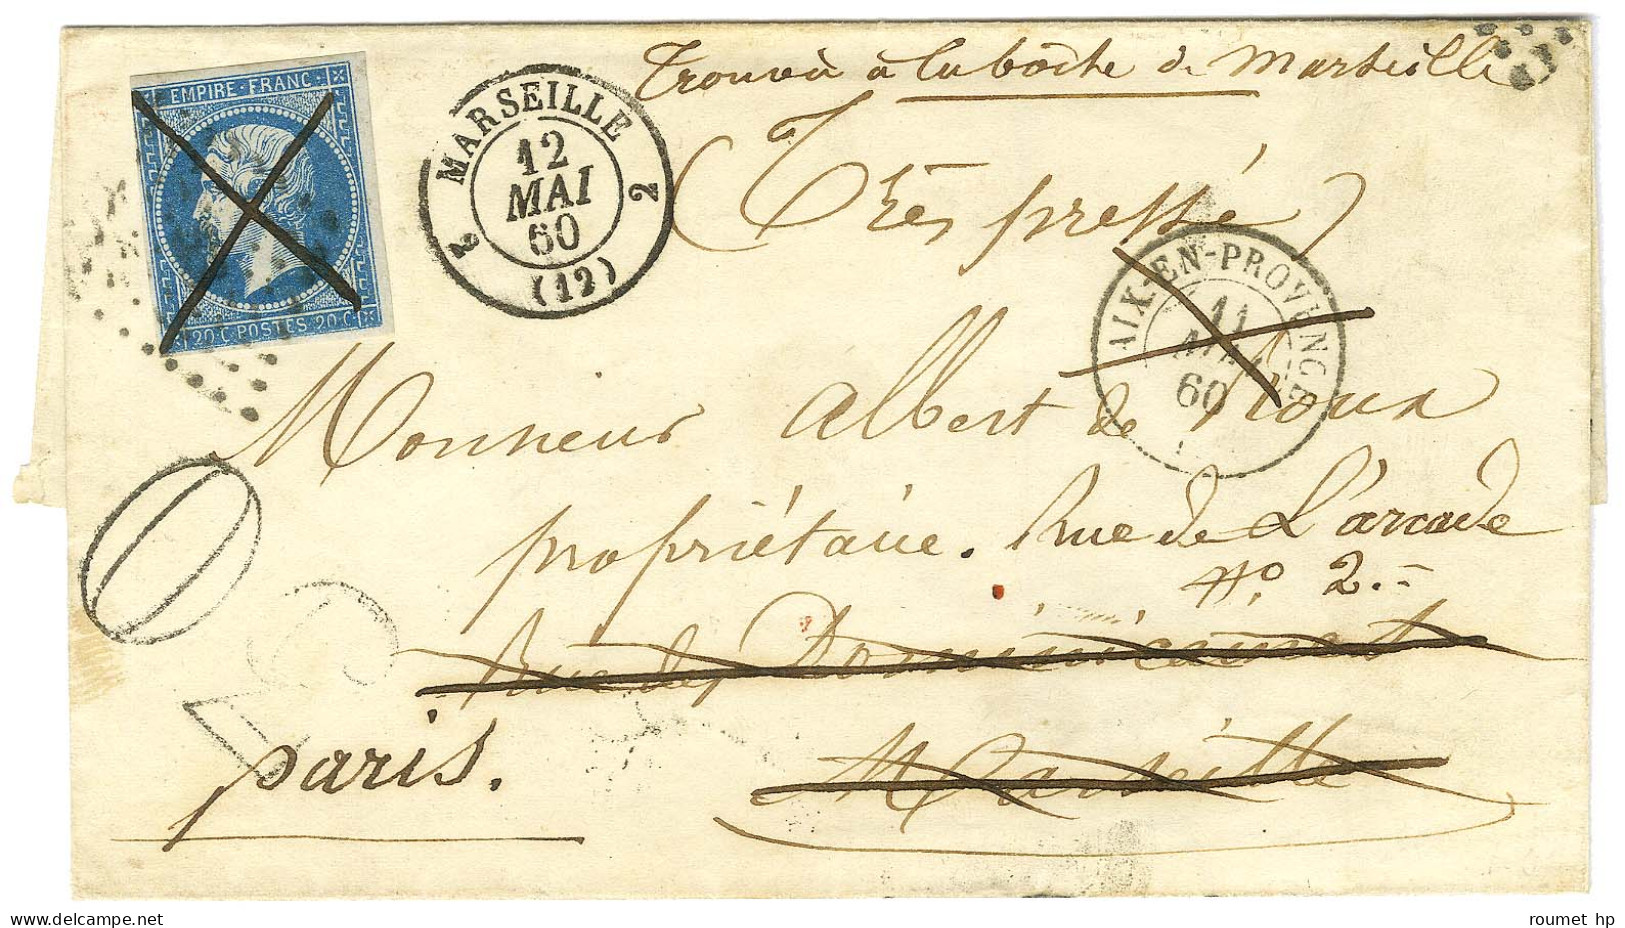 Trouvée à la boîte de Marseille
EMPIRE·FRANC·
20 C POSTES 20 C
MARSEILLE
12
MAI
60
2 2
(12)
Très pressé
AIX-EN-PROVENCE
11
MAI
60
Monsieur Albert de Roux
propriétaire. Rue de L'arcade
N° 2.
Rue des Dominicaines
Marseille
paris.
roumet hp